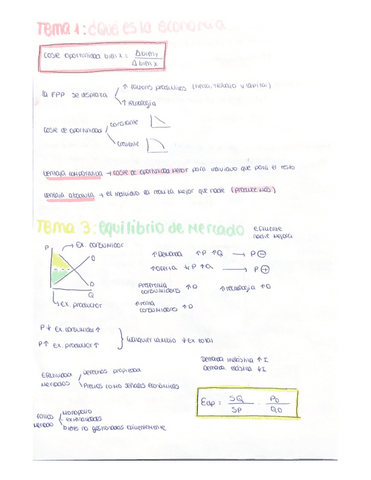 TEMA 1: ¿Qué es la economía
Coste oportunidad bien x = Δ bien y / Δ bien x
La FPP se desplaza
↑ Factores productivos (tierra, trabajo y capital)
↑ Tecnología
Coste de oportunidad
constante
creciente
Ventaja comparativa → coste de oportunidad menor para individuo que para el resto
Ventaja absoluta → el individuo lo realiza mejor que nadie (produce más)
TEMA 3: Equilibrio de Mercado
Eficiente
nadie mejora
P
Ex. consumidor
O
D
Q
Ex. productor
↑ Demanda ↑P ↑Q → P ⊖
↑ Oferta ↓P ↑Q → P ⊕
consumidores ↑ D
↑ Tecnología ↑ O
consumidores ↑ D
P↓ Ex. consumidor ↑
P↑ Ex. productor ↑
Cualquier variación ↓ Ex. total
Demanda inelástica ↑ I
Demanda elástica ↓ I
Eficiencia Mercados
Derechos propiedad
Precios como señales económicas
Fallos Mercado
Monopolio
Externalidades
Bienes no gestionados eficientemente
EOp = ΔQ / ΔP · P0 / Q0